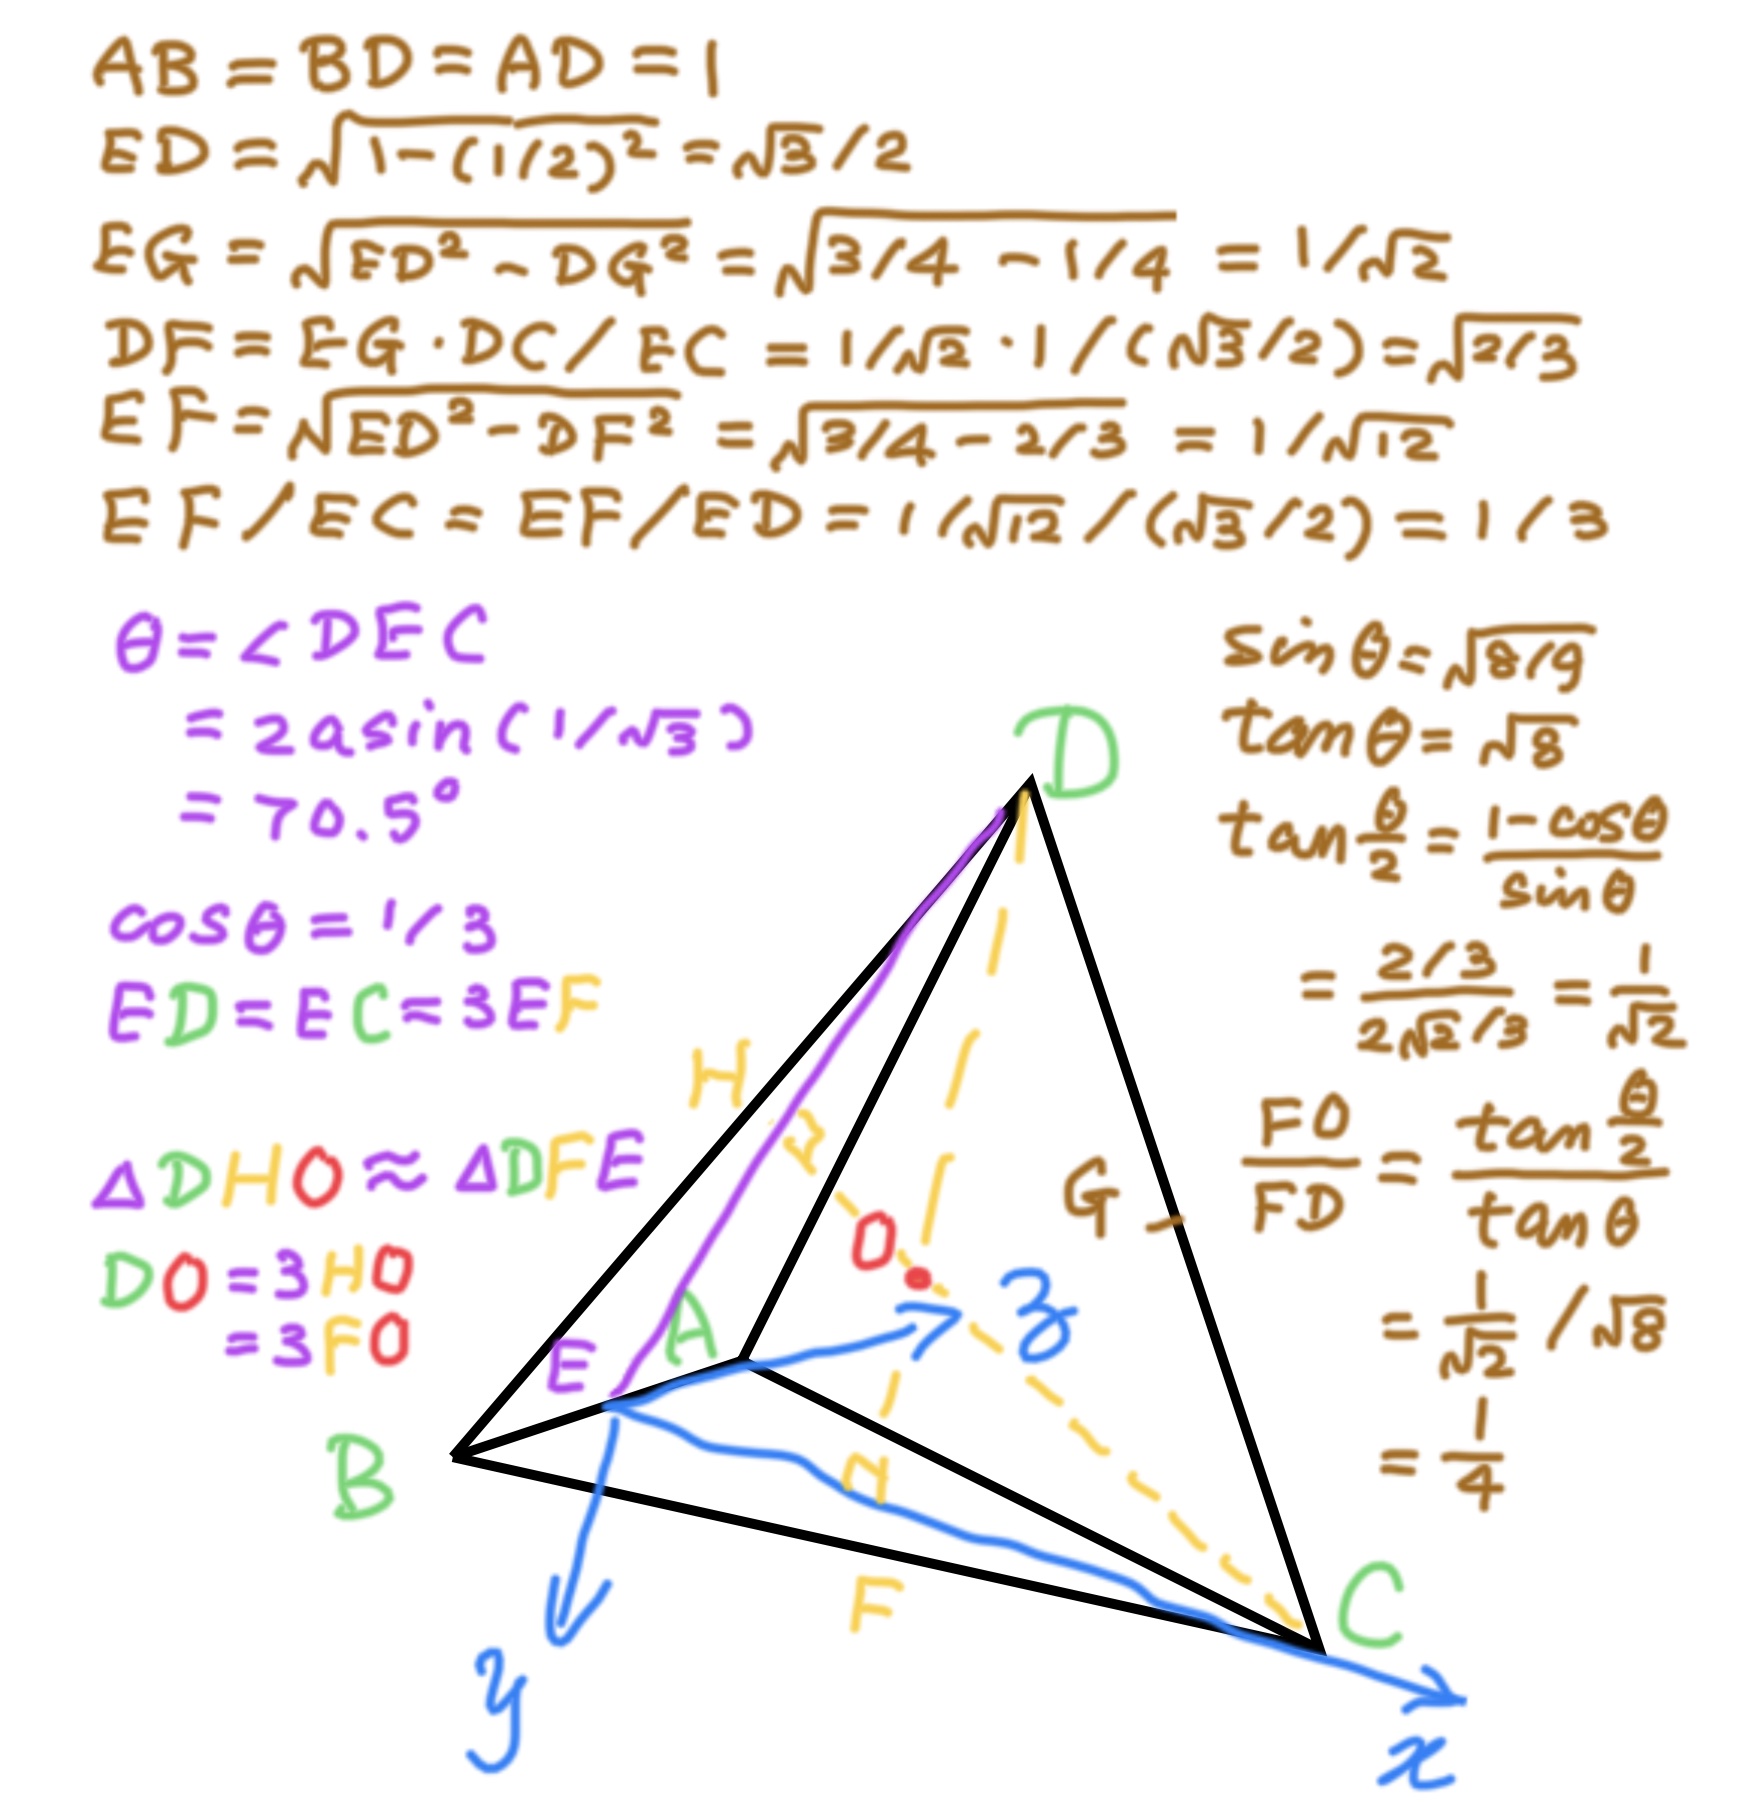 AB = BD = AD = 1
ED = √(1-(1/2)²) = √3/2
EG = √(ED² - DG²) = √(3/4 - 1/4) = 1/√2
DF = EG · DC / EC = 1/√2 · 1/(√3/2) = √(2/3)
EF = √(ED² - DF²) = √(3/4 - 2/3) = 1/√12
EF/EC = EF/ED = 1/√12/(√3/2) = 1/3
θ = ∠DEC
= 2asin(1/√3)
= 70.5°
cosθ = 1/3
ED = EC = 3EF
ΔDHO ≈ ΔDFE
DO = 3HO
= 3FO
sinθ = √(8/9)
tanθ = √8
tan θ/2 = (1-cosθ)/sinθ
= (2/3)/(2√2/3) = 1/√2
FO/FD = (tan θ/2)/(tanθ)
= 1/√2 / √8
= 1/4
D
H
G
O
A
z
E
B
F
C
y
x